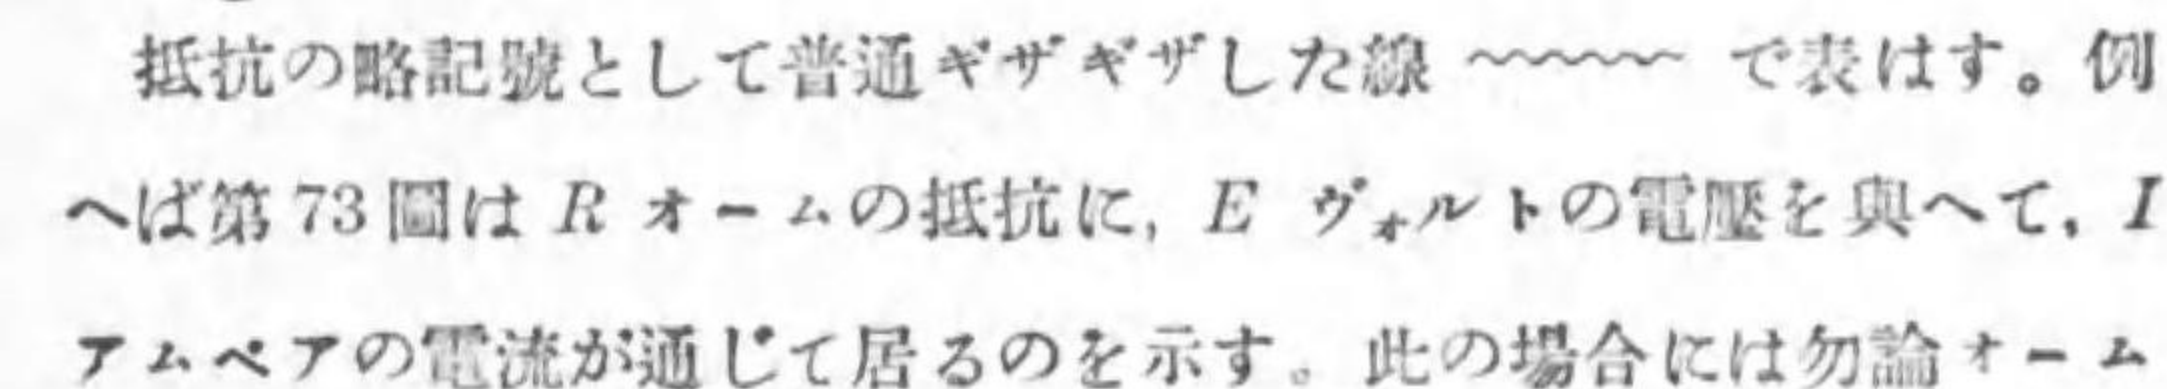 抵抗の略記號として普通ギザギザした線 〜〜〜〜 で表はす。例
へば第73圖は R オームの抵抗に, E ヴォルトの電壓を與へて, I
アムペアの電流が通じて居るのを示す。此の場合には勿論オーム